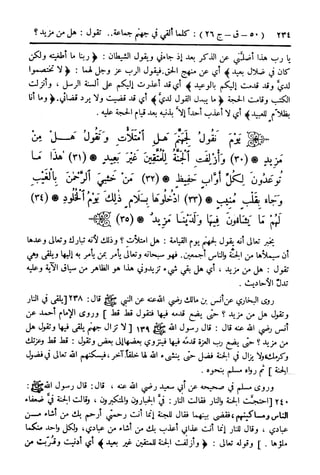 ٢٣٤ (٥٠ - ق - ج ٢٦) : كلما ألقي في جهنم جماعة.. تقول : هل من مزيد ؟
يا رب هذا أضلني عن الذكر بعد إذ جاءني ويقول الشيطان : ﴿ ربنا ما أطغيته ولكن
كان في ضلال بعيد ﴾ أي عن منهج الحق. فيقول الرب عز وجل لهما : ﴿ لا تختصموا
لدي وقد قدمت إليكم بالوعيد ﴾ أي قد أعذرت إليكم على ألسنة الرسل ، وأنزلت
الكتب وقامت الحجة ﴿ ما يبدل القول لدي ﴾ أي قد قضيت ولا يرد قضائي. ﴿ وما أنا
بظلام للعبيد ﴾ أي لا أعذب أحداً إلا بذنبه بعد قيام الحجة عليه .
﴿ يَوْمَ نَقُولُ لِجَهَنَّمَ هَلِ امْتَلَأْتِ وَتَقُولُ هَلْ مِنْ
مَزِيدٍ * (٣٠) وَأُزْلِفَتِ الْجَنَّةُ لِلْمُتَّقِينَ غَيْرَ بَعِيدٍ * (٣١) هَذَا مَا
تُوعَدُونَ لِكُلِّ أَوَّابٍ حَفِيظٍ * (٣٢) مَنْ خَشِيَ الرَّحْمَنَ بِالْغَيْبِ
وَجَاءَ بِقَلْبٍ مُنِيبٍ * (٣٣) ادْخُلُوهَا بِسَلَامٍ ذَلِكَ يَوْمُ الْخُلُودِ * (٣٤)
لَهُمْ مَا يَشَاءُونَ فِيهَا وَلَدَيْنَا مَزِيدٌ * (٣٥) ﴾
يخبر تعالى أنه يقول لجهنم يوم القيامة : هل امتلأت ؟ وذلك لأنه تبارك وتعالى وعدها
أن سيملأها من الجنة والناس أجمعين. فهو سبحانه وتعالى يأمر بمن يأمر به إليها ويلقى وهي
تقول : هل من مزيد ، أي هل بقي شيء تزيدوني هذا هو الظاهر من سياق الآية وعليه
تدل الأحاديث .
روى البخاري عن أنس بن مالك رضي الله عنه عن النبي ﷺ قال : ٢٣٨ [ يلقى في النار
وتقول هل من مزيد ؟ حتى يضع قدمه فيها فتقول قط قط ] وروى الإمام أحمد عن
أنس رضي الله عنه قال : قال رسول الله ﷺ ٢٣٩ [ لا تزال جهنم يلقى فيها وتقول هل
من مزيد ؟ حتى يضع رب العزة قدمه فيها فينزوي بعضها إلى بعض وتقول : قط قط وعزتك
وكرمك ولا يزال في الجنة فضل حتى ينشىء الله لها خلقاً آخر ، فيسكنهم الله تعالى في فضول
الجنة ] ثم رواه مسلم بنحوه .
وروى مسلم في صحيحه عن أبي سعيد رضي الله عنه ، قال : قال رسول الله ﷺ :
٢٤٠ [ احتجت الجنة والنار فقالت النار : في الجبارون والمتكبرون ، وقالت الجنة في ضعفاء
الناس ومساكينهم ، فقضى بينهما فقال للجنة إنما أنت رحمتي أرحم بك من أشاء من
عبادي ، وقال للنار إنما أنت عذابي أعذب بك من أشاء من عبادي ، ولكل واحد منكما
ملؤها . ] وقوله تعالى : ﴿ وأزلفت الجنة للمتقين غير بعيد ﴾ أي أدنيت وقربت من